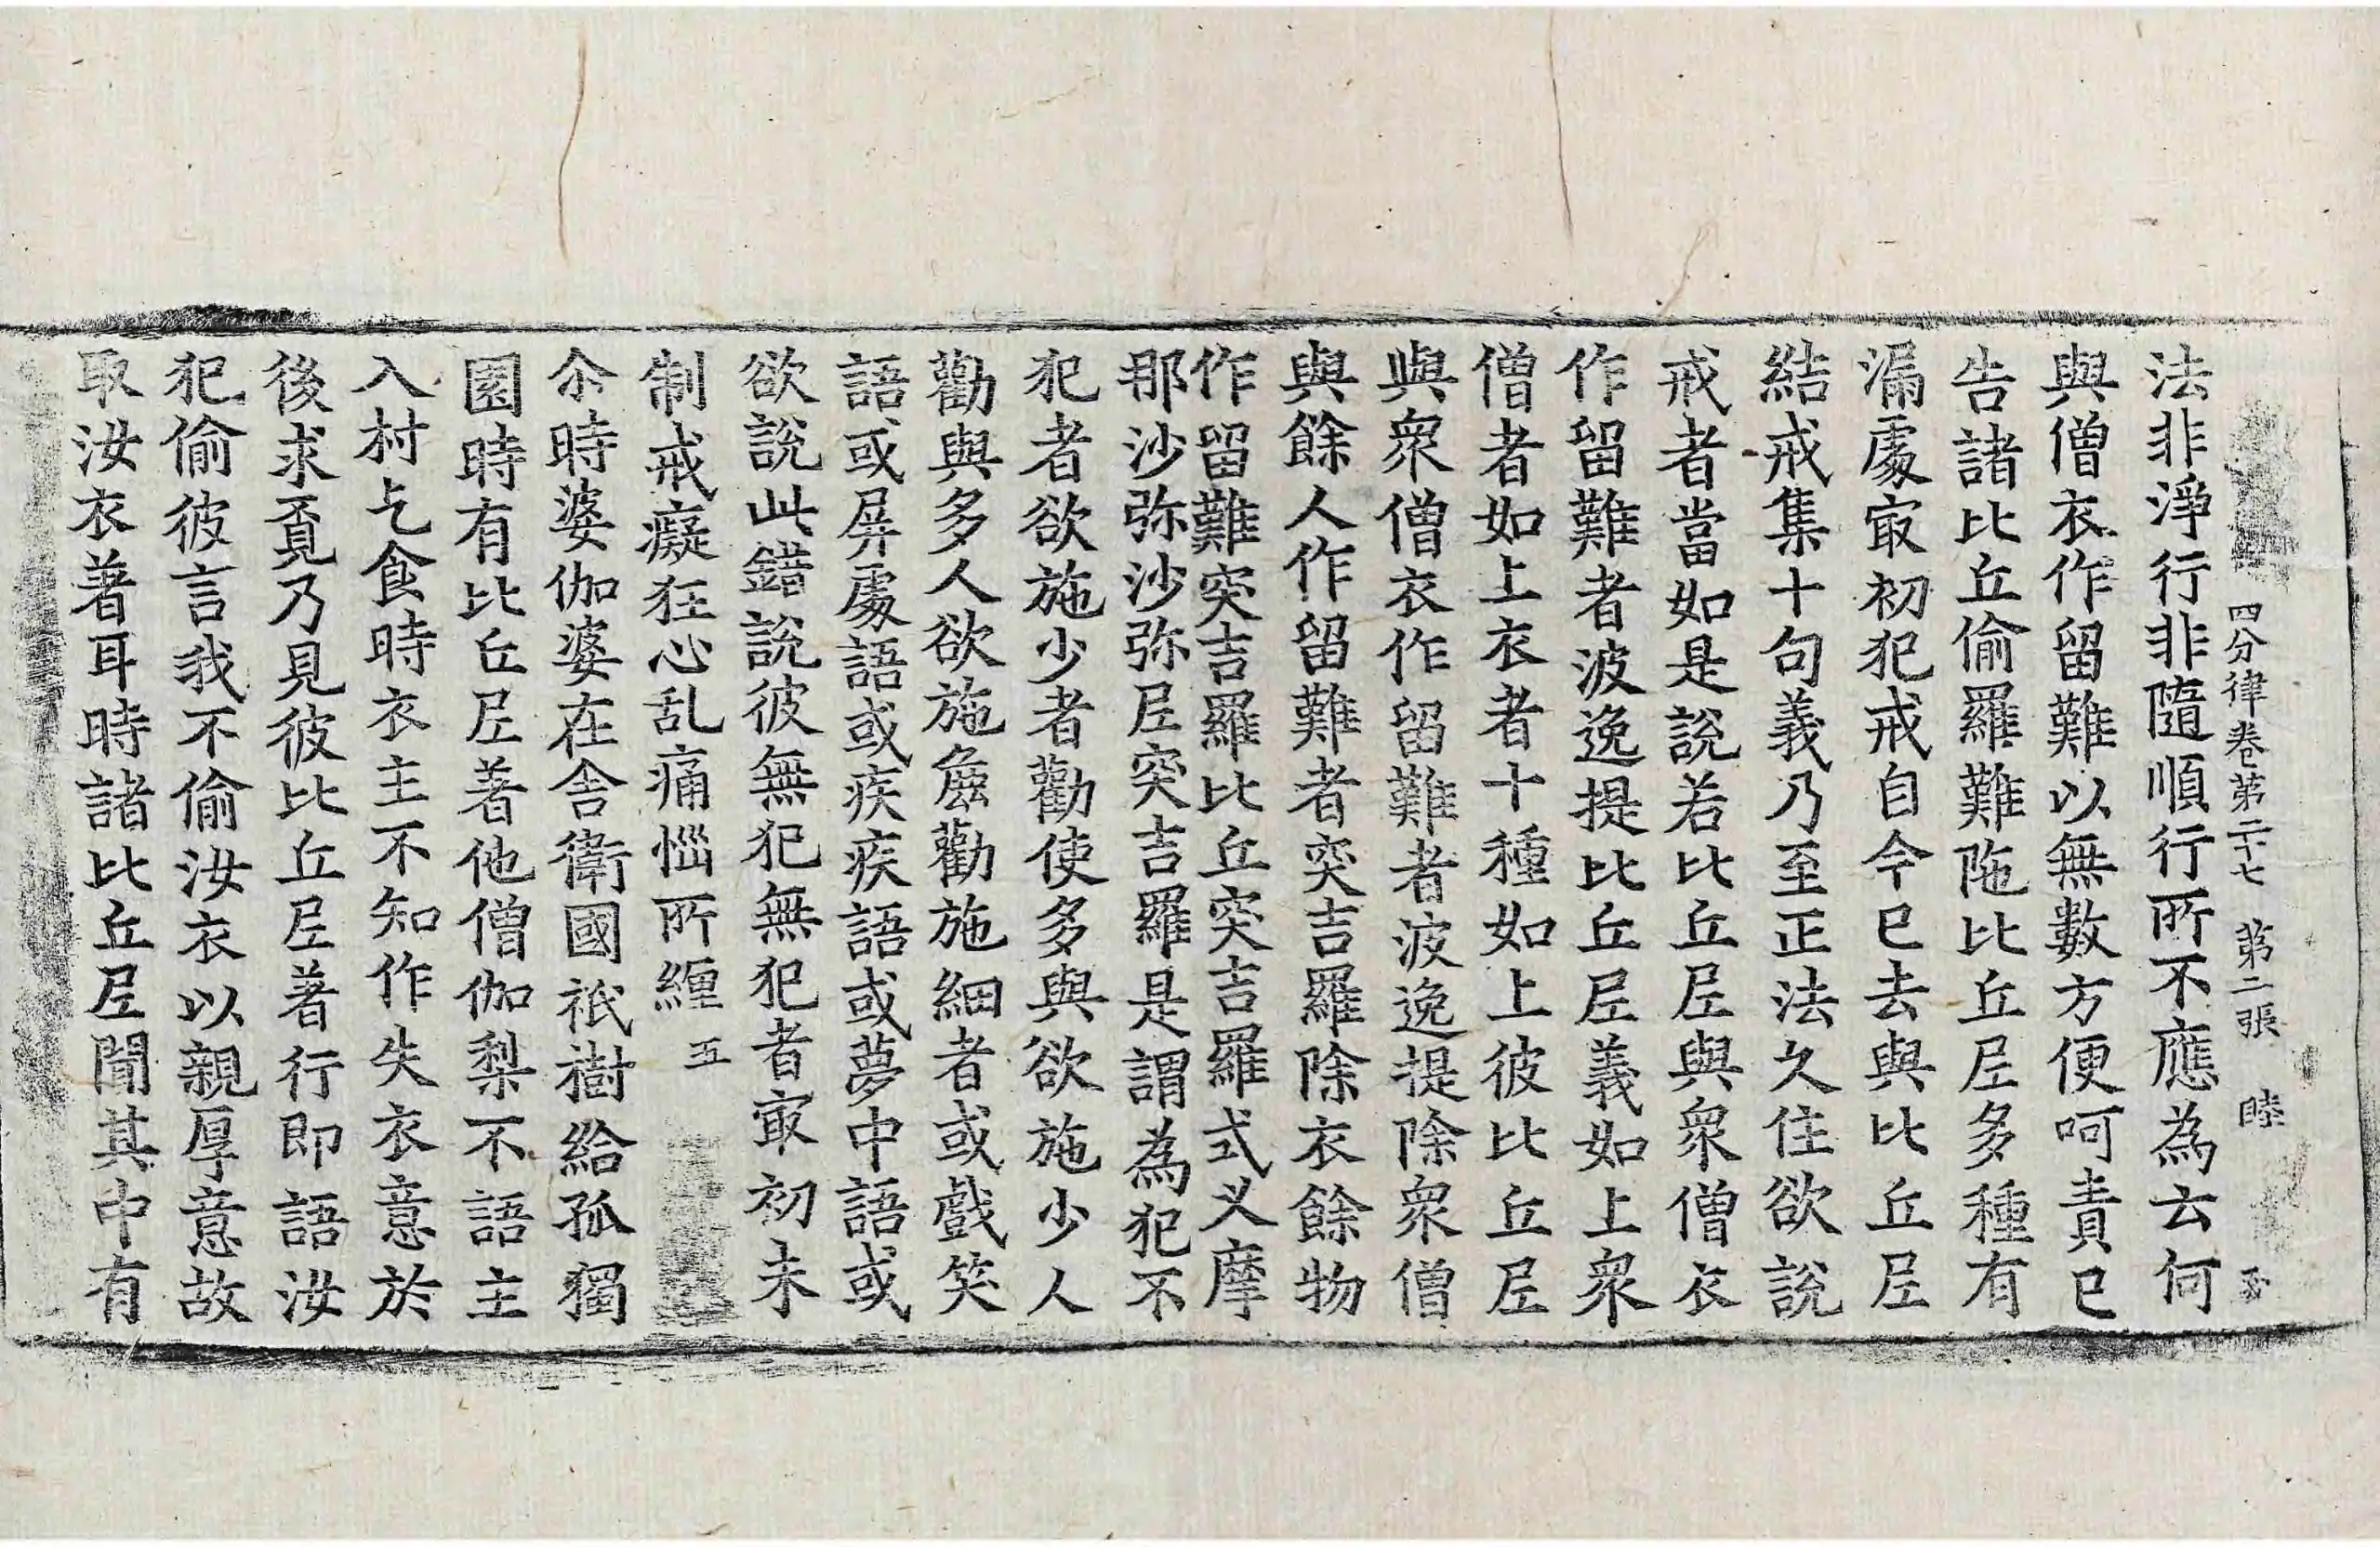 四分律卷第二十七 第二張 睦
法非淨行非隨順行所不應為云何
與僧衣作留難以無數方便呵責已
告諸比丘偷羅難陁比丘尼多種有
漏處冣初犯戒自今已去與比丘尼
結戒集十句義乃至正法久住欲說
戒者當如是說若比丘尼與衆僧衣
作留難者波逸提比丘尼義如上衆
僧者如上衣者十種如上彼比丘尼
與衆僧衣作留難者波逸提除衆僧
與餘人作留難者突吉羅除衣餘物
作留難突吉羅比丘突吉羅式叉摩
那沙弥沙弥尼突吉羅是謂為犯不
犯者欲施少者勸使多與欲施少人
勸與多人欲施麁勸施細者或戲笑
語或屏處語或疾疾語或夢中語或
欲說此錯說彼無犯無犯者冣初未
制戒癡狂心乱痛惱所纏 五
尒時婆伽婆在舍衛國祇樹給孤獨
園時有比丘尼著他僧伽梨不語主
入村乞食時衣主不知作失衣意於
後求覔乃見彼比丘尼著行即語汝
犯偷彼言我不偷汝衣以親厚意故
取汝衣著耳時諸比丘尼聞其中有